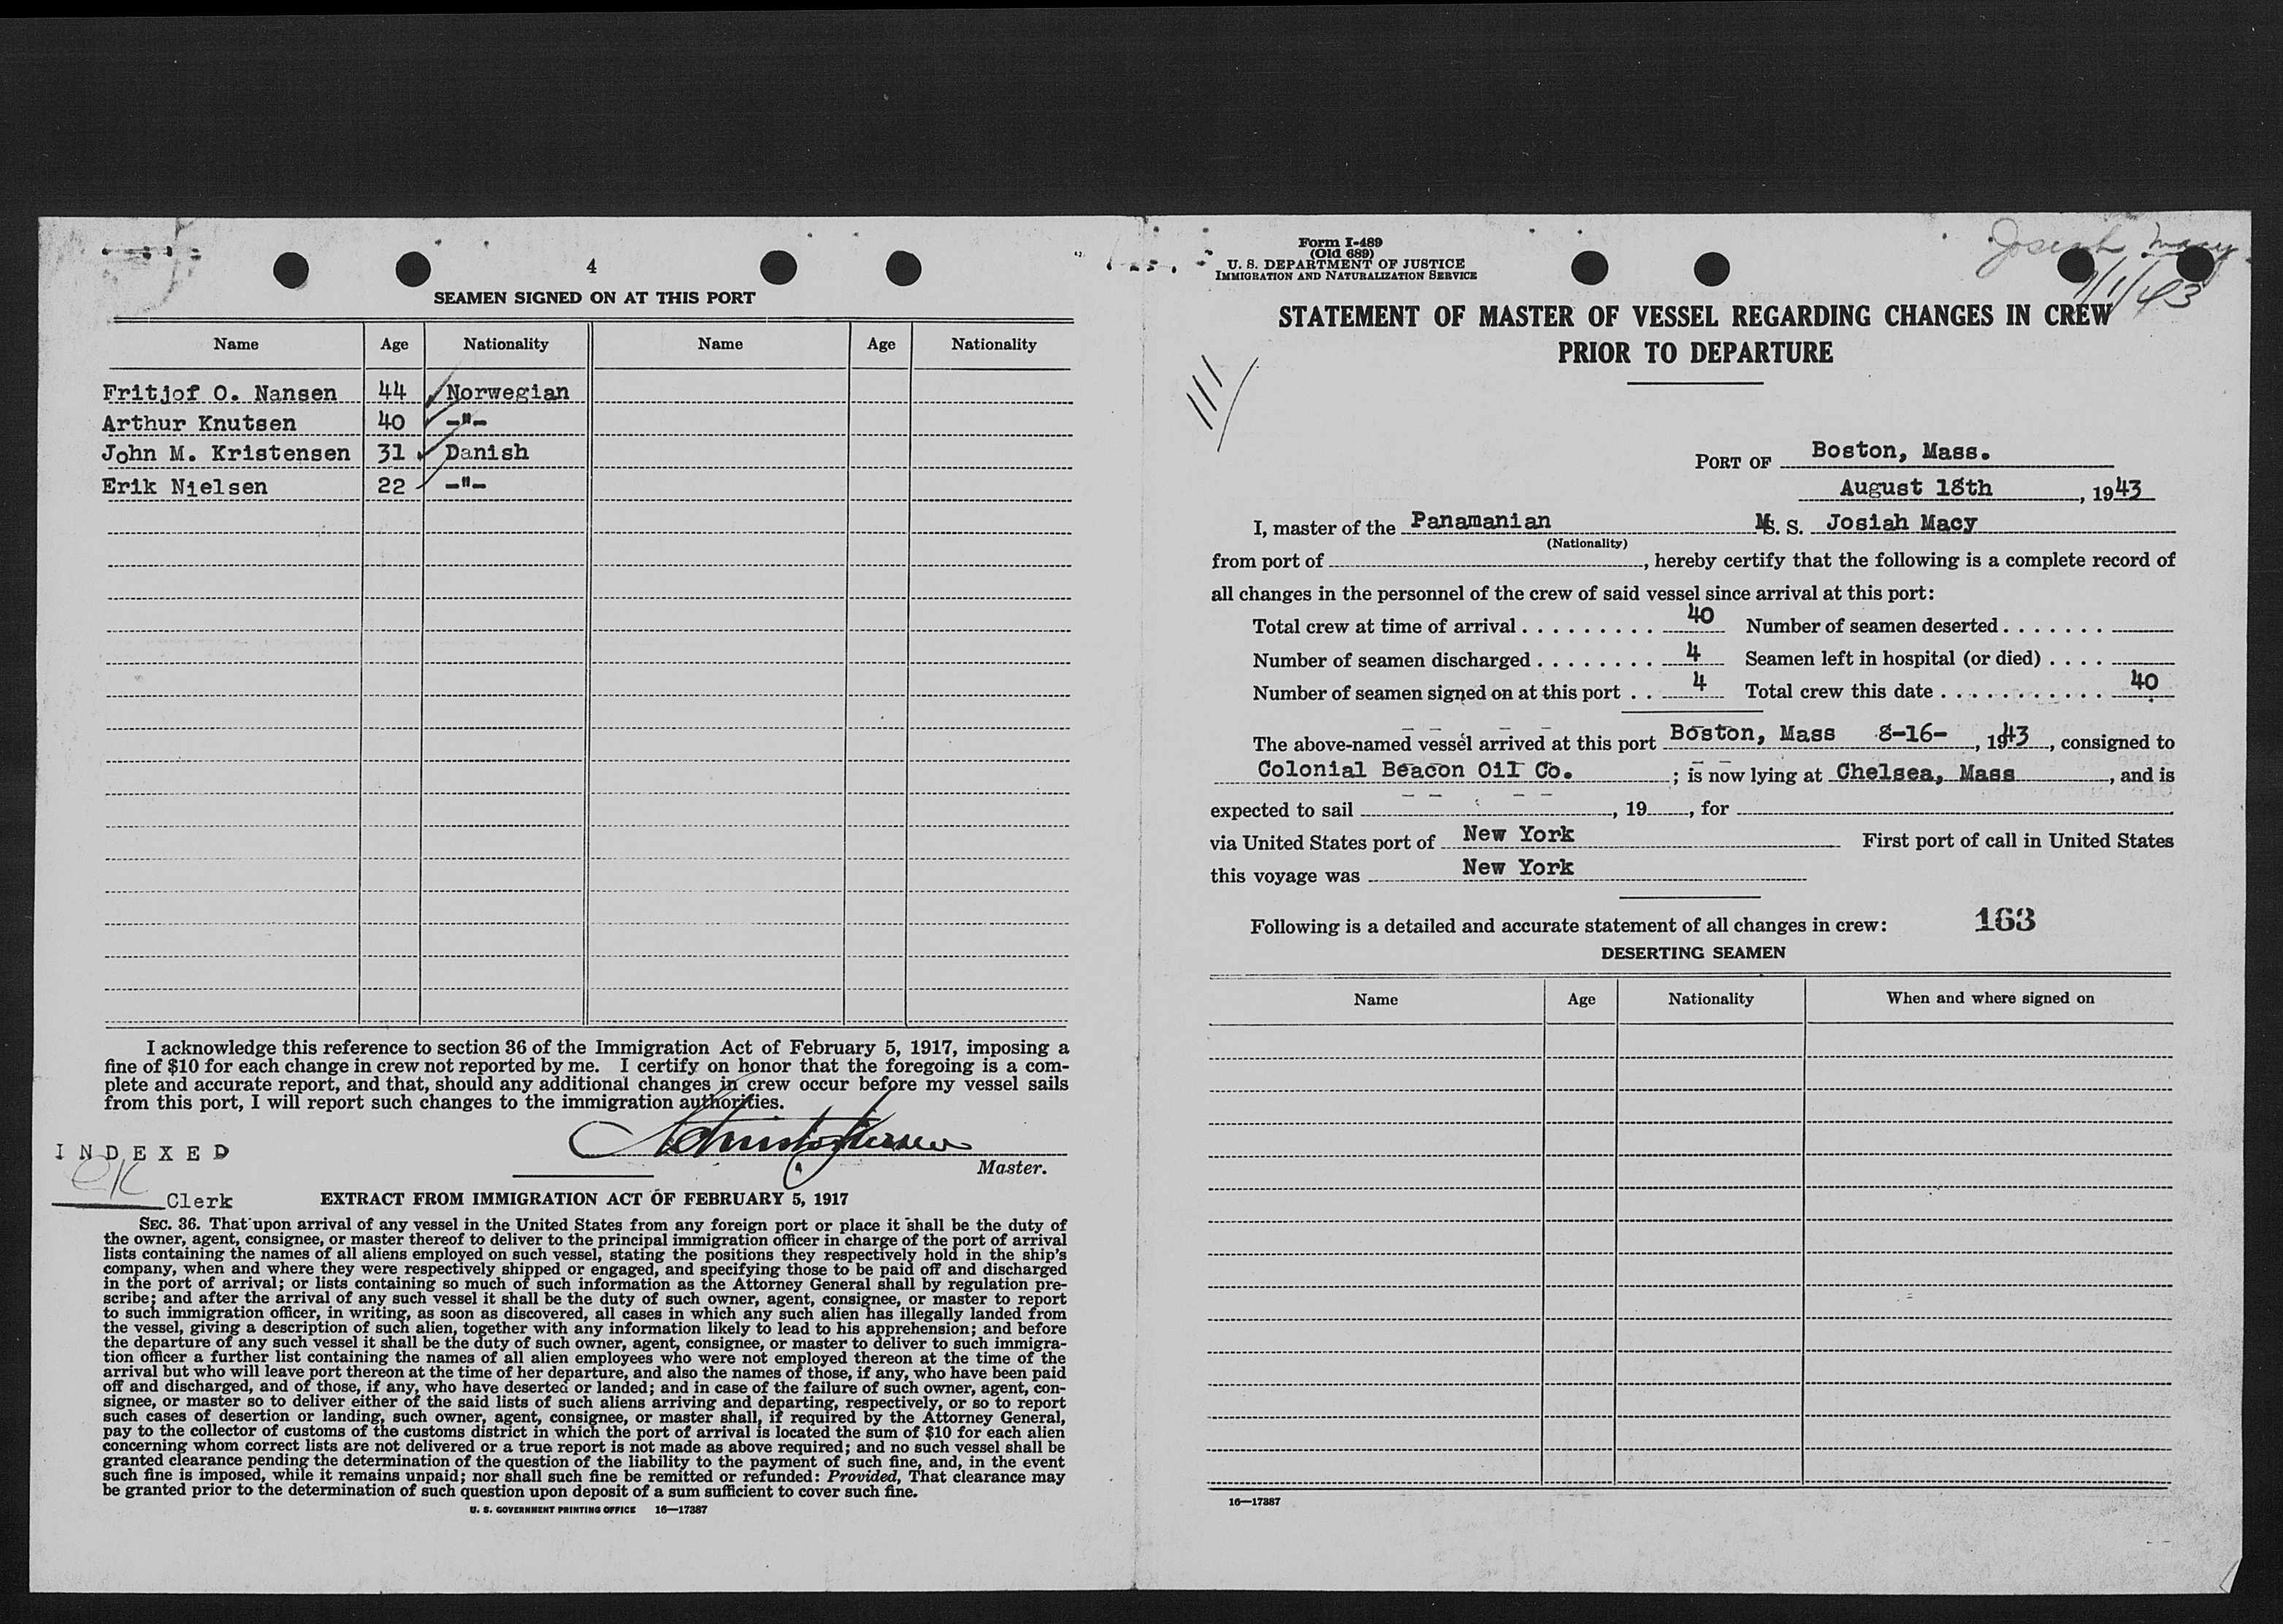 4
SEAMEN SIGNED ON AT THIS PORT
Name Age Nationality Name Age Nationality
Fritjof O. Nansen 44 Norwegian
Arthur Knutsen 40 -"-
John M. Kristensen 31 Danish
Erik Nielsen 22 -"-
I acknowledge this reference to section 36 of the Immigration Act of February 5, 1917, imposing a
fine of $10 for each change in crew not reported by me. I certify on honor that the foregoing is a com-
plete and accurate report, and that, should any additional changes in crew occur before my vessel sails
from this port, I will report such changes to the immigration authorities.
Master.
INDEXED
Clerk
EXTRACT FROM IMMIGRATION ACT OF FEBRUARY 5, 1917
SEC. 36. That upon arrival of any vessel in the United States from any foreign port or place it shall be the duty of
the owner, agent, consignee, or master thereof to deliver to the principal immigration officer in charge of the port of arrival
lists containing the names of all aliens employed on such vessel, stating the positions they respectively hold in the ship's
company, when and where they were respectively shipped or engaged, and specifying those to be paid off and discharged
in the port of arrival; or lists containing so much of such information as the Attorney General shall by regulation pre-
scribe; and after the arrival of any such vessel it shall be the duty of such owner, agent, consignee, or master to report
to such immigration officer, in writing, as soon as discovered, all cases in which any such alien has illegally landed from
the vessel, giving a description of such alien, together with any information likely to lead to his apprehension; and before
the departure of any such vessel it shall be the duty of such owner, agent, consignee, or master to deliver to such immigra-
tion officer a further list containing the names of all alien employees who were not employed thereon at the time of the
arrival but who will leave port thereon at the time of her departure, and also the names of those, if any, who have been paid
off and discharged, and of those, if any, who have deserted or landed; and in case of the failure of such owner, agent, con-
signee, or master so to deliver either of the said lists of such aliens arriving and departing, respectively, or so to report
such cases of desertion or landing, such owner, agent, consignee, or master shall, if required by the Attorney General,
pay to the collector of customs of the customs district in which the port of arrival is located the sum of $10 for each alien
concerning whom correct lists are not delivered or a true report is not made as above required; and no such vessel shall be
granted clearance pending the determination of the question of the liability to the payment of such fine, and, in the event
such fine is imposed, while it remains unpaid; nor shall such fine be remitted or refunded: Provided, That clearance may
be granted prior to the determination of such question upon deposit of a sum sufficient to cover such fine.
U. S. GOVERNMENT PRINTING OFFICE 16—17387
Form I-489
(Old 689)
U. S. DEPARTMENT OF JUSTICE
IMMIGRATION AND NATURALIZATION SERVICE
Josiah Macy
9/1/43
STATEMENT OF MASTER OF VESSEL REGARDING CHANGES IN CREW
PRIOR TO DEPARTURE
PORT OF Boston, Mass.
August 18th, 1943
I, master of the Panamanian M. S. Josiah Macy
(Nationality)
from port of , hereby certify that the following is a complete record of
all changes in the personnel of the crew of said vessel since arrival at this port:
Total crew at time of arrival . . . . . . . . . 40 Number of seamen deserted . . . . . . .
Number of seamen discharged . . . . . . . . 4 Seamen left in hospital (or died) . . . .
Number of seamen signed on at this port . . 4 Total crew this date . . . . . . . . . . . 40
The above-named vessel arrived at this port Boston, Mass 8-16- , 1943, consigned to
Colonial Beacon Oil Co. ; is now lying at Chelsea, Mass , and is
expected to sail , 19 , for
via United States port of New York First port of call in United States
this voyage was New York
Following is a detailed and accurate statement of all changes in crew: 163
DESERTING SEAMEN
Name Age Nationality When and where signed on
16—17387